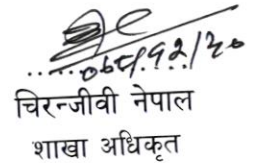 ०८१।१२।२०
चिरन्जीवी नेपाल
शाखा अधिकृत